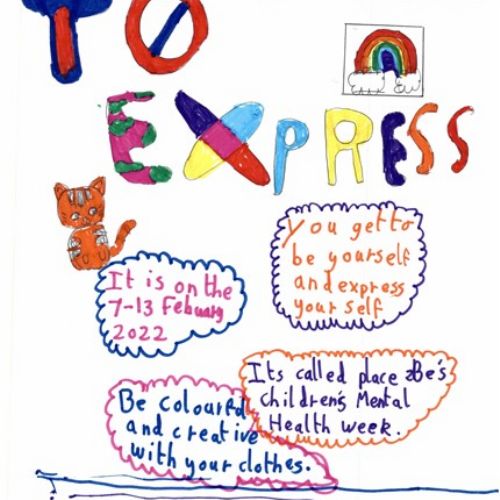 TO
EXPRESS
You get to
be yourself
and express
your self
It is on the
7-13 Febuary
2022
Its called place 2Be's
children's Mental
Health week.
Be colourful
and creative
with your clothes.